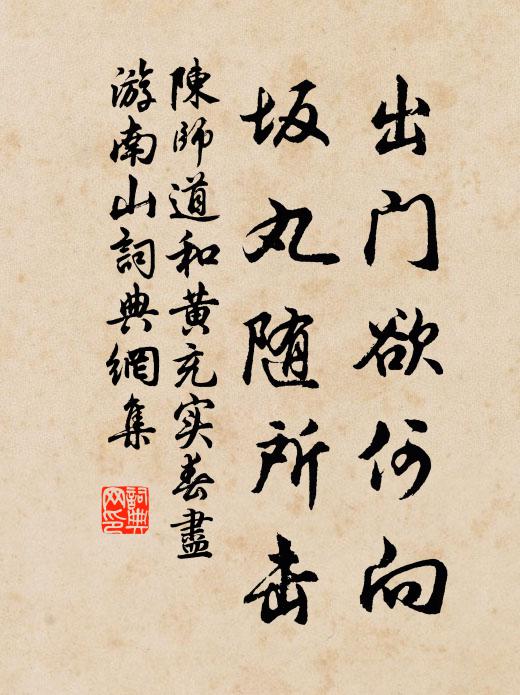 出门欲何向
坂丸随所击
陳師道和黄充实春盡
游南山詞典網集
詞典网印